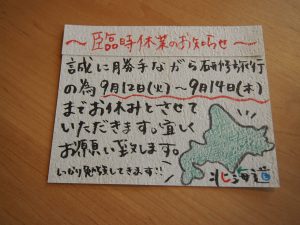 ～臨時休業のお知らせ～
誠に勝手ながら研修旅行
の為9月12日(火)～9月14日(木)
までお休みとさせて
いただきます。宜しく
お願い致します。
しっかり勉強してきます!!
北海道